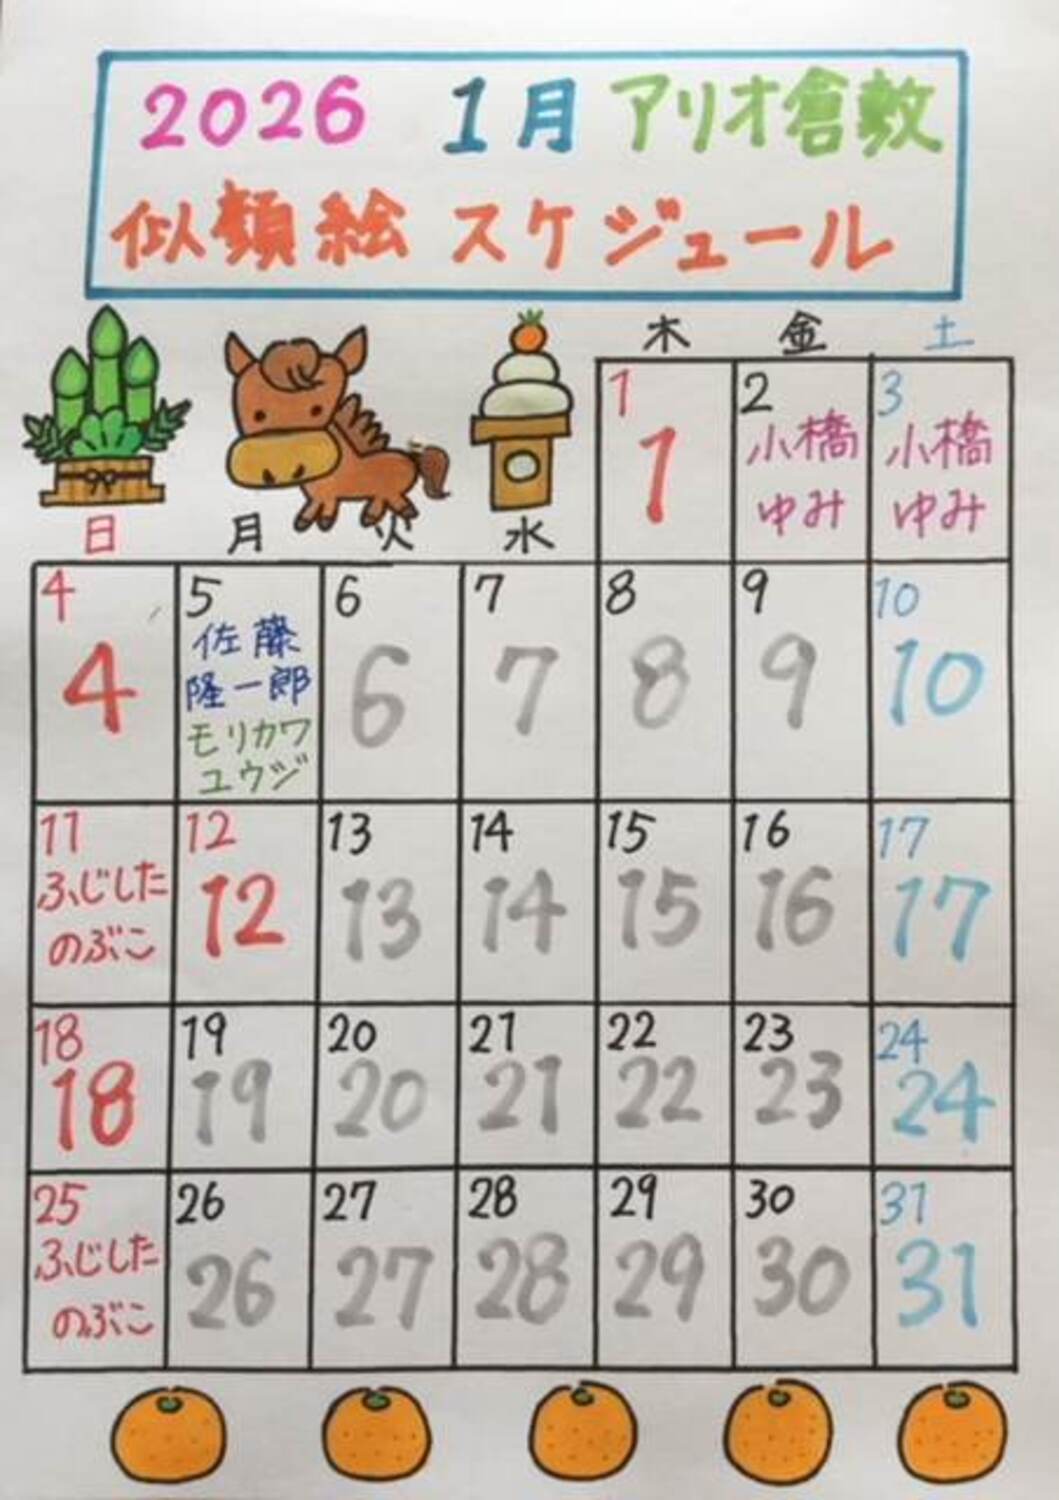 2026 1月 アリオ倉敷
似顔絵 スケジュール
木 金 土
1 2 3
1 小橋 小橋
ゆみ ゆみ
日 月 火 水
4 5 6 7 8 9 10
4 佐藤 6 7 8 9 10
隆一郎
モリカワ
ユウジ
11 12 13 14 15 16 17
ふじした 12 13 14 15 16 17
のぶこ
18 19 20 21 22 23 24
18 19 20 21 22 23 24
25 26 27 28 29 30 31
ふじした 26 27 28 29 30 31
のぶこ